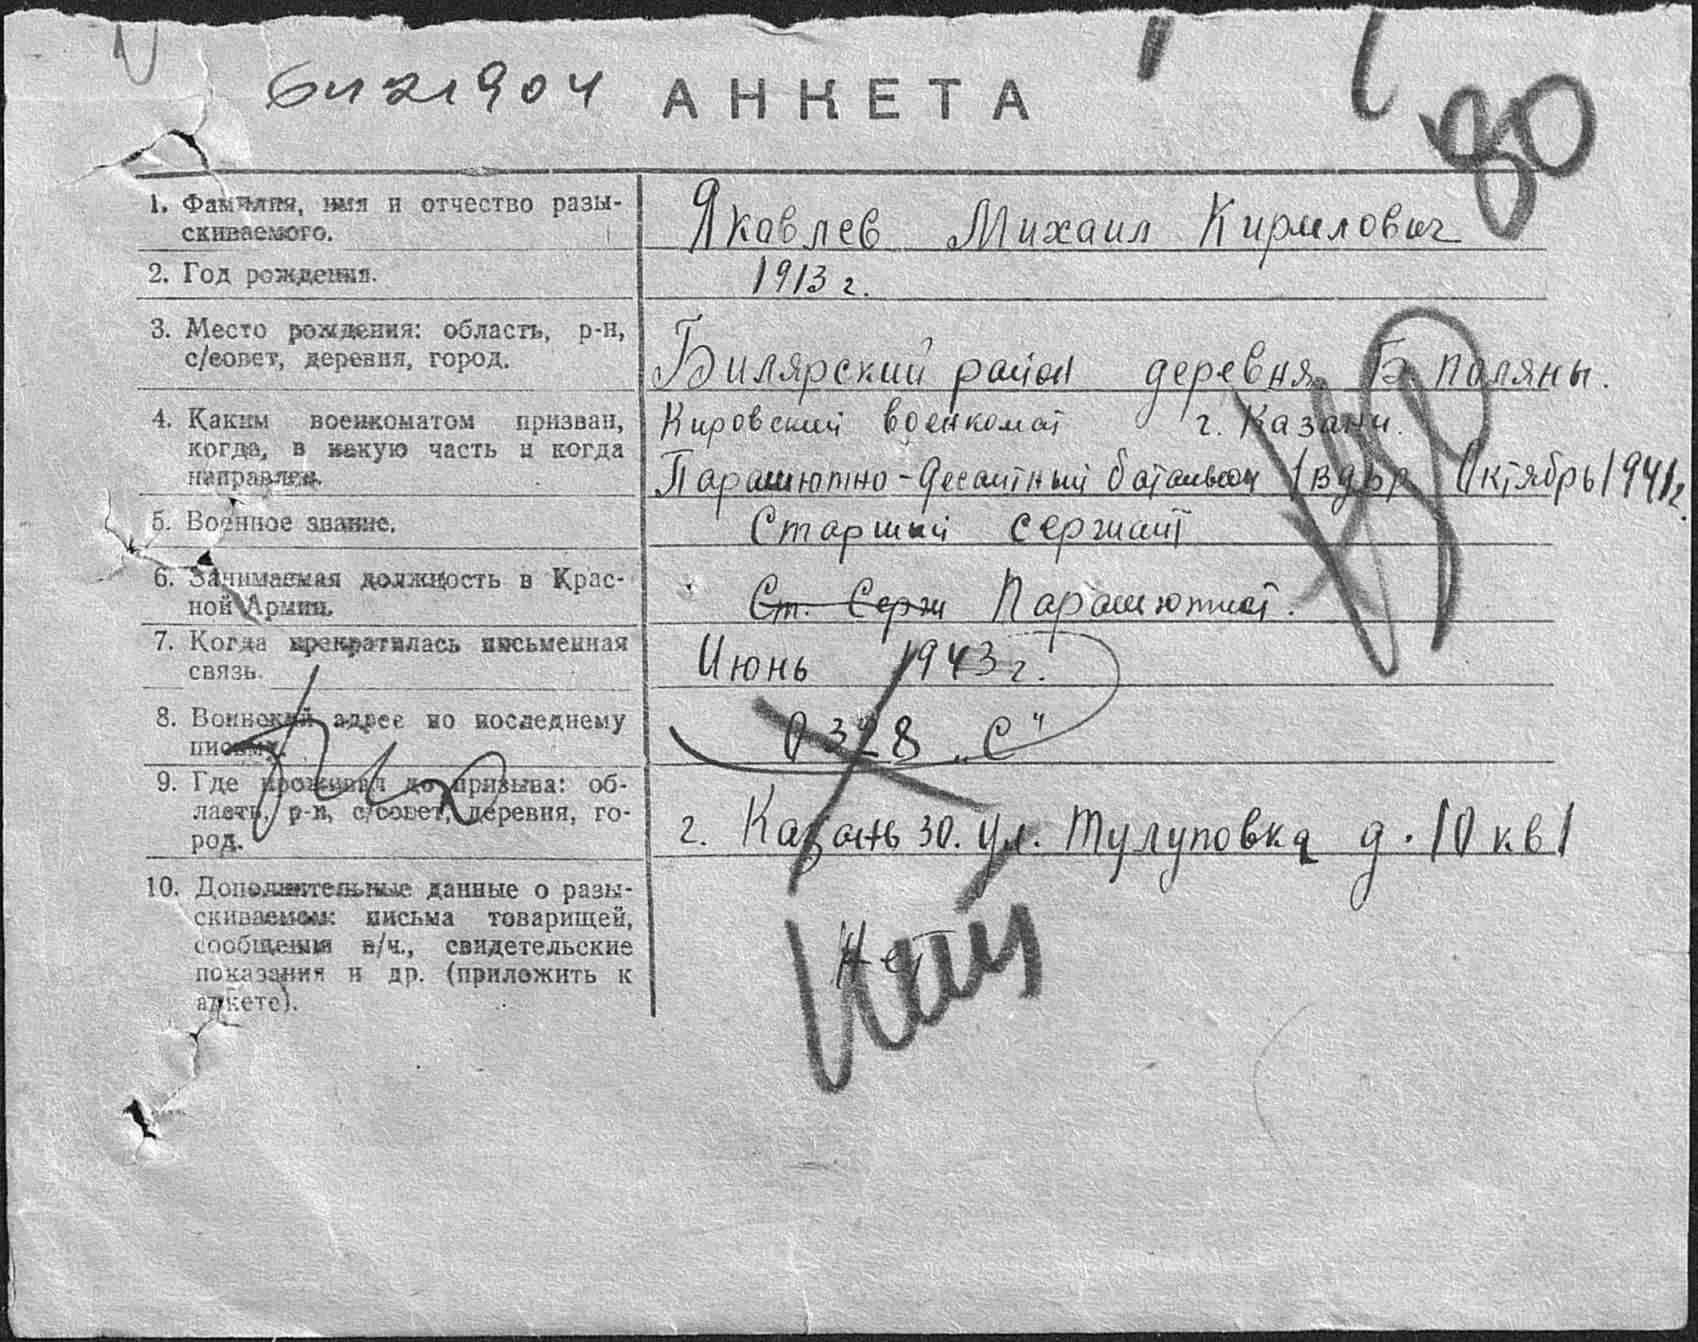 АНКЕТА
80
1. Фамилия, имя и отчество разы-
скиваемого.
Яковлев Михаил Кирилович
2. Год рождения.
1913 г.
3. Место рождения: область, р-н,
с/совет, деревня, город.
Билярский район деревня Б. поляны.
4. Каким военкоматом призван,
когда, в какую часть и когда
направлен.
Кировский военкомат г. Казани.
Парашютно-десантный батальон Октябрь 1941г.
5. Военное звание.
Старший сержант
6. Занимаемая должность в Крас-
ной Армии.
Ст. Серж Парашютист.
7. Когда прекратилась письменная
связь.
Июнь 1943 г.
8. Воинский адрес по последнему
письму.
0328 „С"
9. Где проживал до призыва: об-
ласть, р-н, с/совет, деревня, го-
род.
г. Казань 30. ул. Тулуповка д. 10 кв 1
10. Дополнительные данные о разы-
скиваемом: письма товарищей,
сообщения в/ч., свидетельские
показания и др. (приложить к
анкете).
Нет